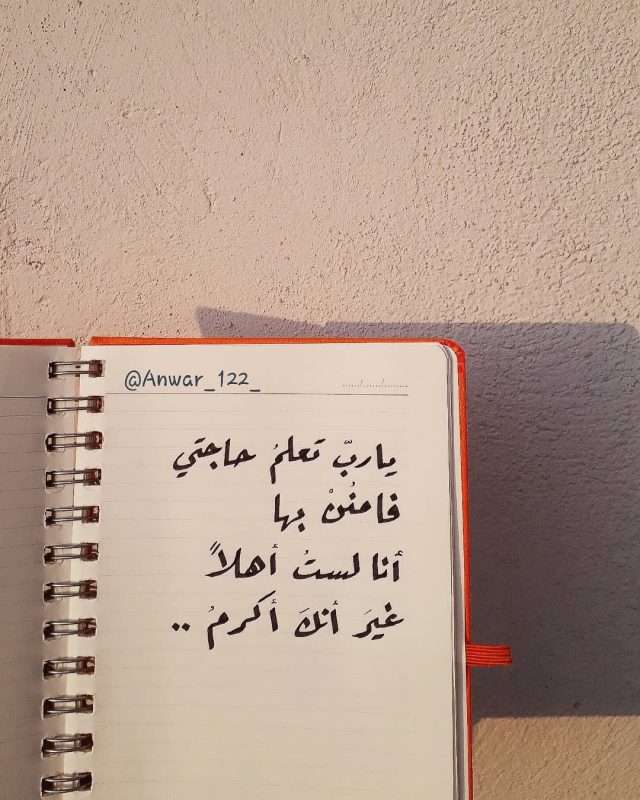 @Anwar_122_
ياربّ تعلمُ حاجتي
فامنُنْ بها
أنا لستُ أهلاً
غيرَ أنكَ أكرمُ ..